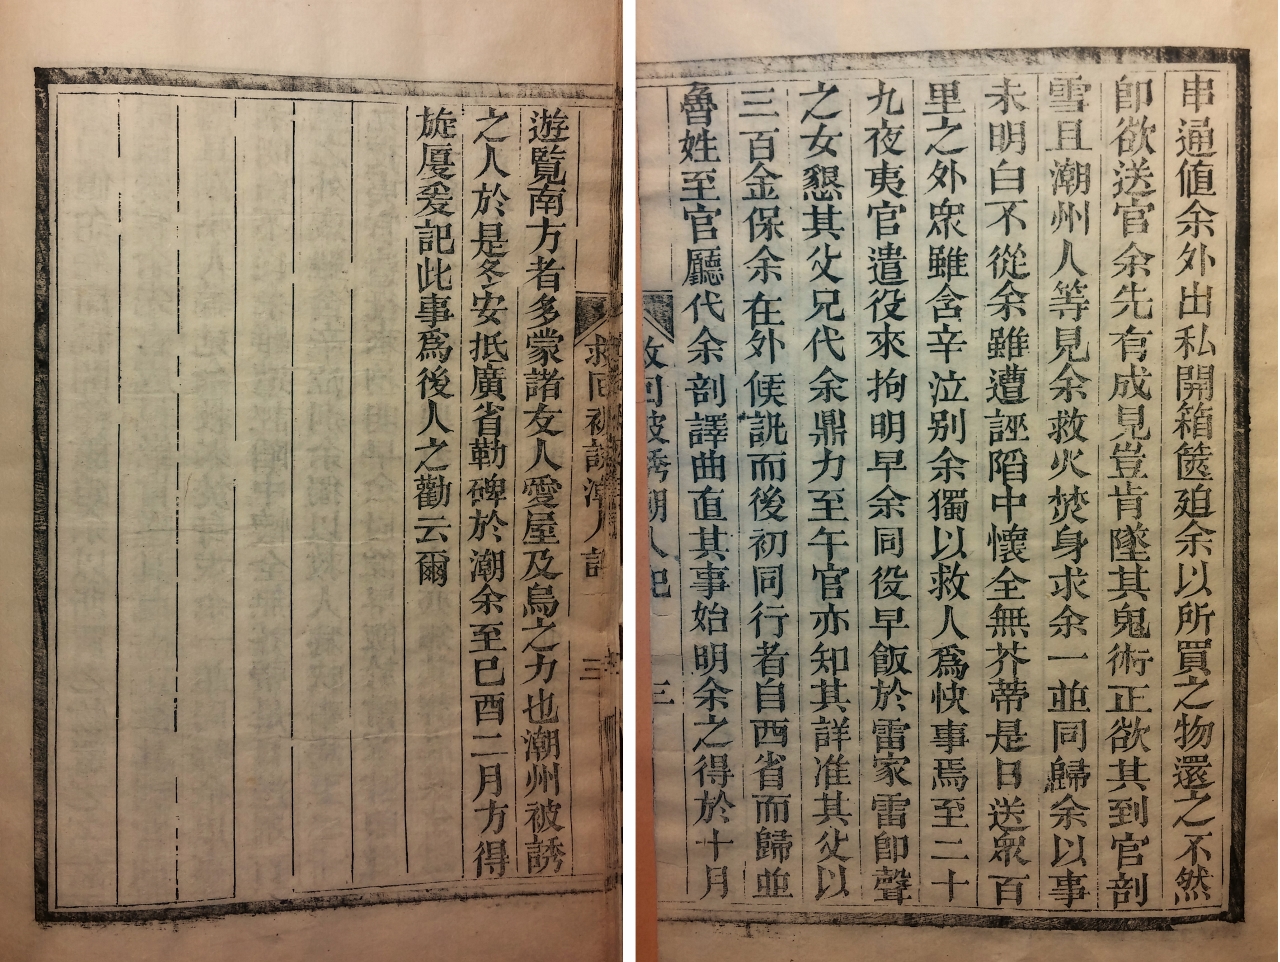 串通值余外出私開箱篋廹余以所買之物還之不然
卽欲送官余先有成見豈肯墜其鬼術正欲其到官剖
雪且潮州人等見余救火焚身求余一並同歸余以事
未明白不從余雖遭誣陷中懷全無芥蒂是日送衆百
里之外衆雖含辛泣别余獨以救人爲快事焉至二十
九夜夷官遣役來拘明早余同役早飯於雷家雷卽聲
之女懇其父兄代余鼎力至午官亦知其詳准其父以
三百金保余在外候訊而後初同行者自西省而歸並
魯姓至官廳代余剖譯曲直其事始明余之得於十月
救回被誘潮人記 三
遊覧南方者多蒙諸友人愛屋及烏之力也潮州被誘
之人於是冬安抵廣省勒碑於潮余至巳酉二月方得
旋厦爰記此事爲後人之勸云爾